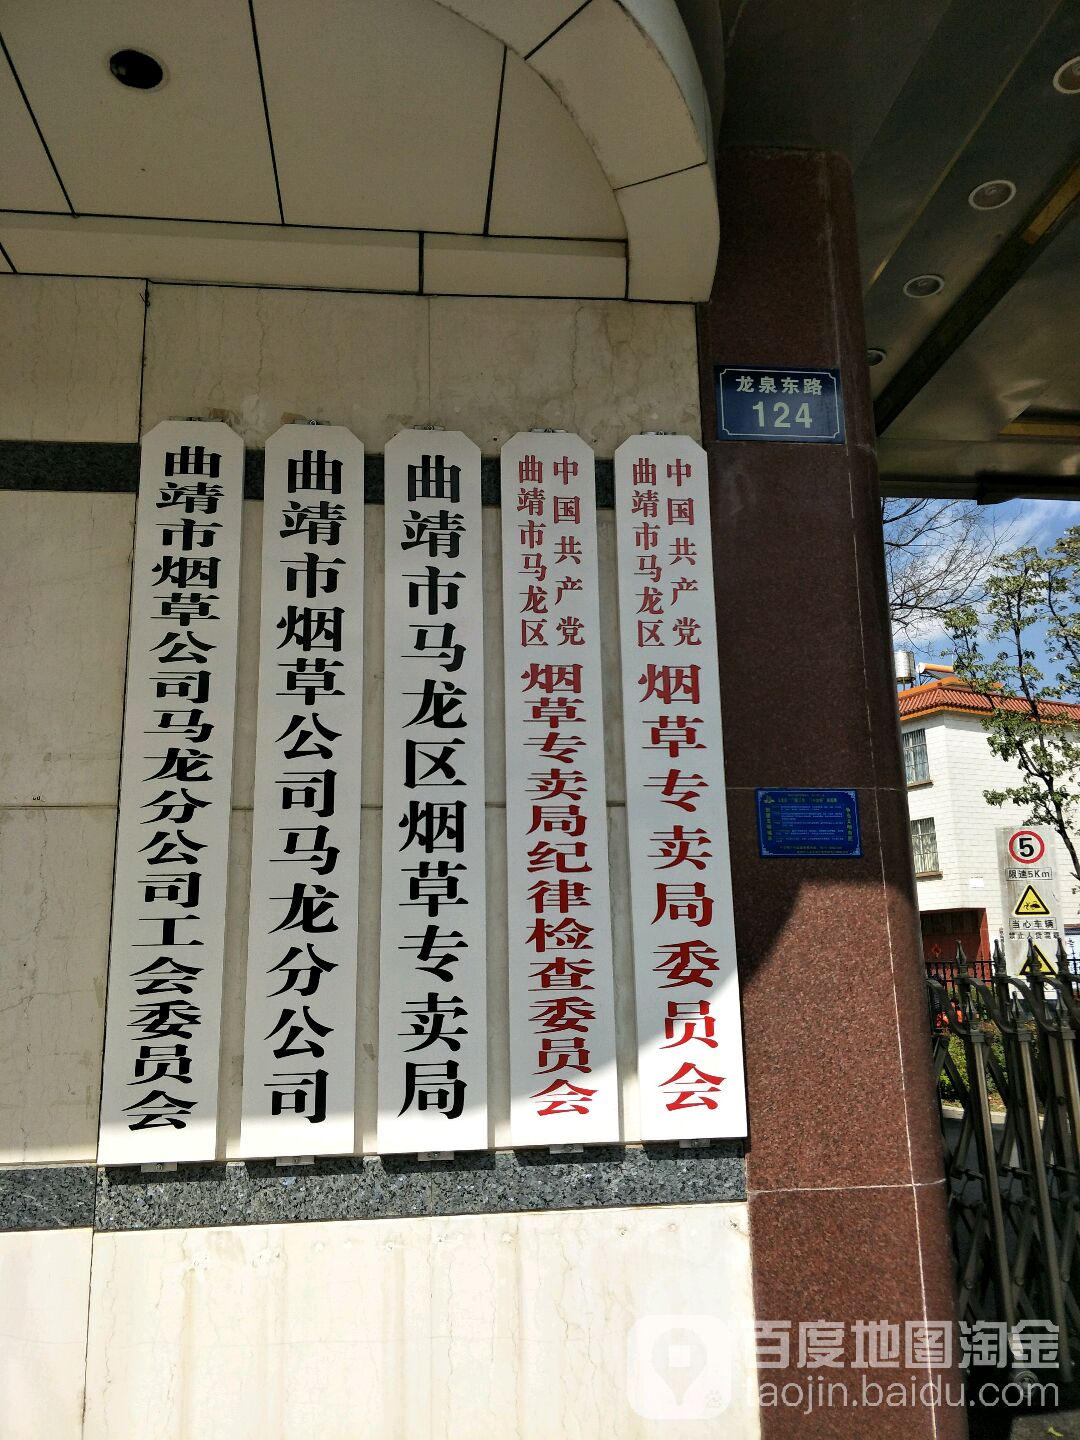 曲靖市烟草公司马龙分公司工会委员会
曲靖市烟草公司马龙分公司
曲靖市马龙区烟草专卖局
中国共产党
曲靖市马龙区
烟草专卖局纪律检查委员会
中国共产党
曲靖市马龙区
烟草专卖局委员会
龙泉东路
124
5
限速5Km
当心车辆
百度地图淘金
taojin.baidu.com